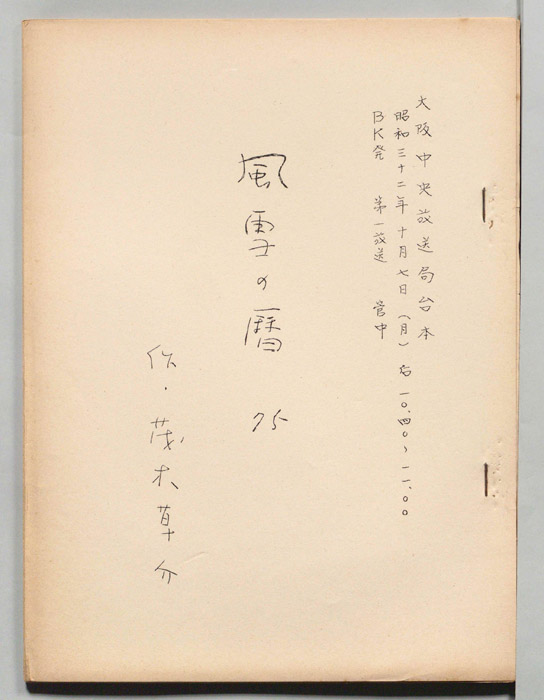 大阪中央放送局台本
昭和三十二年十月七日（月）后一〇.四〇〜一一.〇〇
BK発 第一放送 管中
風雪の暦 75
作・茂木草介